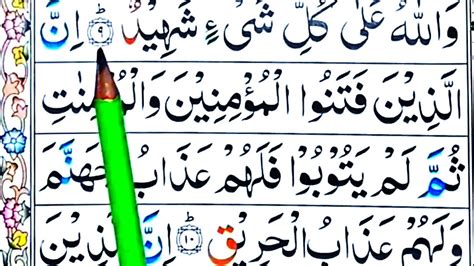 وَاللّٰهُ عَلٰى كُلِّ شَىْءٍ شَهِيْدٌ ۹ اِنَّ
الَّذِيْنَ فَتَنُوا الْمُؤْمِنِيْنَ وَالْمُؤْمِنٰتِ
ثُمَّ لَمْ يَتُوْبُوْا فَلَهُمْ عَذَابُ جَهَنَّمَ
وَلَهُمْ عَذَابُ الْحَرِيْقِ ۱۰ اِنَّ الَّذِيْنَ